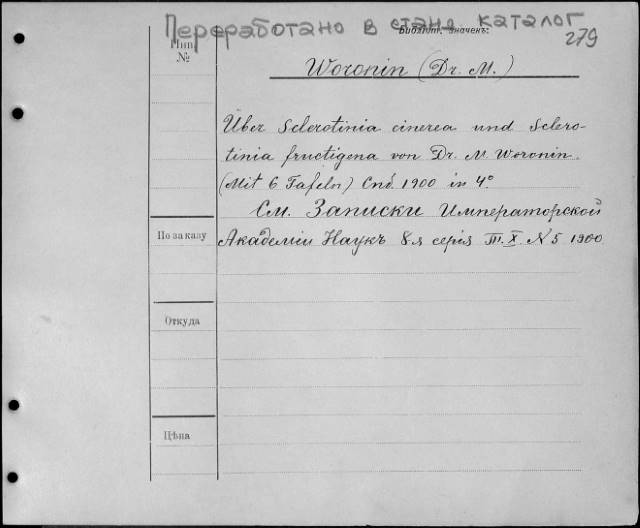 Переработано в стано каталог
Библіот. значекъ:
279
Инв.
№
Woronin (Dr. M.)
Über Sclerotinia cinerea und Sclero-
tinia fructigena von Dr. M Woronin.
(Mit 6 Tafeln) Спб. 1900 in 4°
См. Записки Императорской
По заказу
Академіи Наукъ 8-я серія Т. X. N 5 1900
Откуда
Цѣна